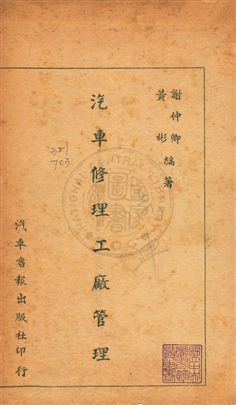 謝仲卿
黃彬 編著
汽車修理工廠管理
汽車書報出版社印行